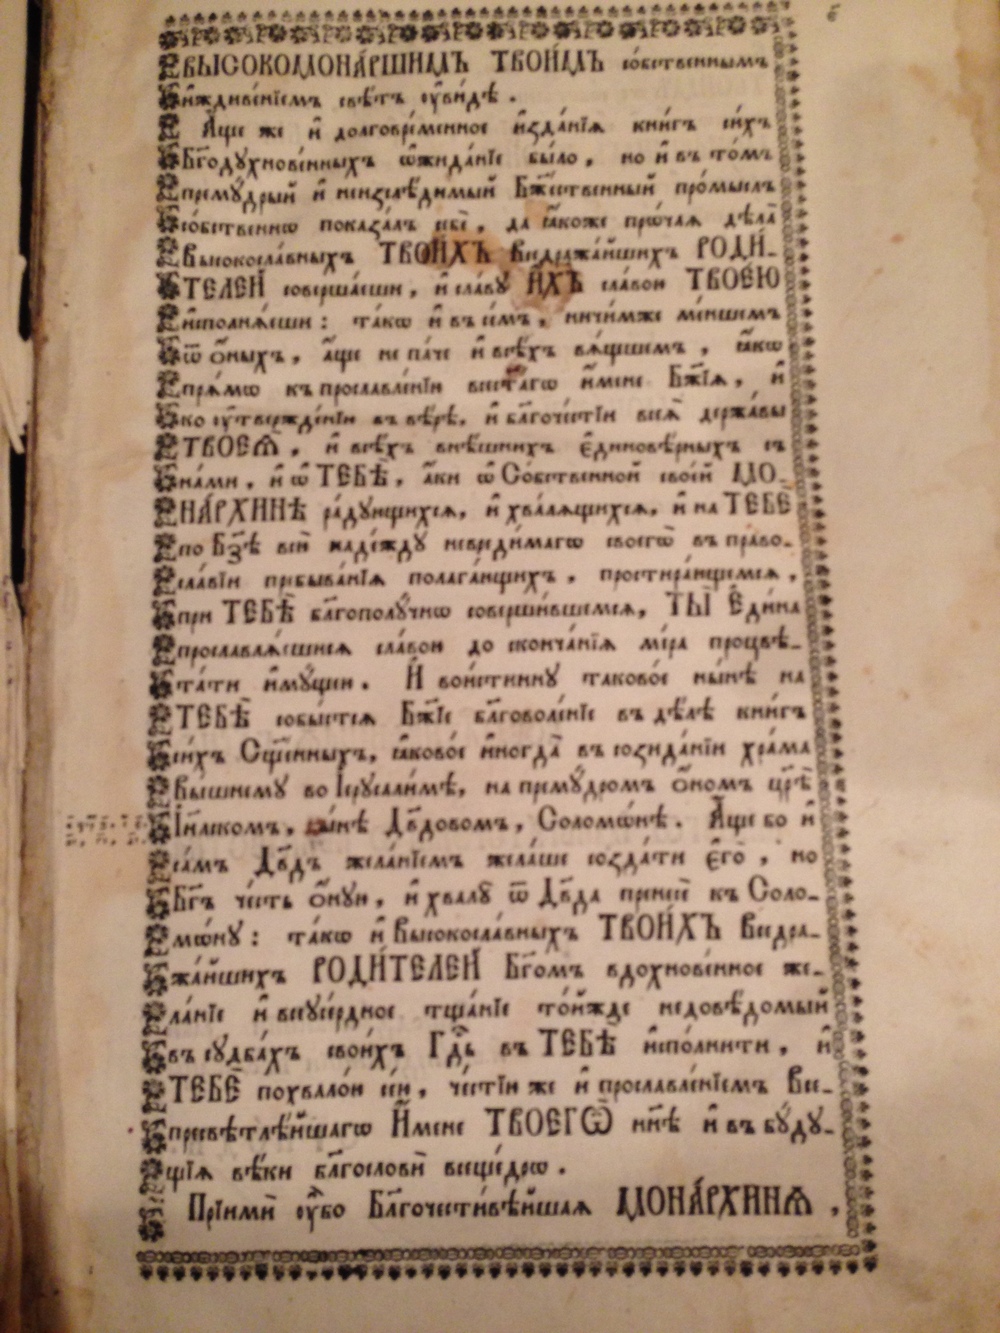 є҃
ВЫСОКОМОНА́РШИМЪ ТВОИ́МЪ со́бственнымъ
и҆ждиве́нїемъ свѣ́тъ ᲂу҆ви́дѣ.
А҆́ще же и҆ долговре́менное и҆зда́нїѧ кни́гъ си́хъ
Бг҃одухнове́нныхъ ѡ҆жида́нїе бы́ло, но и҆ въ то́мъ
премꙋ́дрый и҆ неизслѣ́димый Бж҃е́ственный про́мыслъ
со́бственнѡ показа́лъ себѐ, да ꙗ҆́коже прѡ́чаѧ дѣла̀
Высокосла́вныхъ ТВОИ́ХЪ Вседража́йшихъ РОДИ́-
ТЕЛЕЙ соверша́еши, и҆ сла́вꙋ И҆́ХЪ сла́вою ТВОЕ́Ю
и҆сполнѧ́еши: та́кѡ и҆ въ се́мъ, ничи́мже ме́ньшемъ
ѿ ѻ҆́ныхъ, а҆́ще не па́че и҆ всѣ́хъ вѧ́щшемъ, ꙗ҆́кѡ
прѧ́мѡ къ прославле́нїю всест҃а́гѡ и҆́мене Бж҃їѧ, и҆
ко ᲂу҆твержде́нїю въ вѣ́рѣ, и҆ блг҃оче́стїи всеѧ̀ держа́вы
ТВОЕѦ̀, и҆ всѣ́хъ внѣ́шнихъ є҆диновѣ́рныхъ съ
на́ми, и҆ ѡ҆ ТЕБѢ̀, а҆́ки ѡ҆ Со́бственной свое́й МО-
НА́РХИНѢ ра́дꙋющихсѧ, и҆ хва́лѧщихсѧ, и҆ на ТЕБЀ
по Бз҃ѣ всю̀ наде́ждꙋ невреди́магѡ своегѡ̀ въ право-
сла́вїи пребыва́нїѧ полага́ющихъ, простира́ющемсѧ,
при ТЕБѢ̀ блг҃ополꙋ́чнѡ соверши́вшемсѧ, ТЫ̀ Є҆ди́на
прославлѧ́ешисѧ сла́вою до сконча́нїѧ мі́ра процвѣ-
та́ти и҆мꙋ́щею. И҆ вои́стиннꙋ таково́е ны́нѣ на
ТЕБѢ̀ собы́стсѧ Бж҃їе блг҃оволе́нїе въ дѣ́лѣ кни́гъ
си́хъ Сщ҃е́нныхъ, ꙗ҆ково́е и҆ногда̀ въ созида́нїи хра́ма
Вы́шнемꙋ во І҆ерꙋсали́мѣ, на премꙋ́дромъ ѻ҆́номъ цр҃ѣ̀
І҆и҃лскомъ, сы́нѣ Дв҃довомъ, Соломѡ́нѣ. А҆́ще бо и҆
са́мъ Дв҃дъ жела́нїемъ жела́ше созда́ти є҆го̀, но
Бг҃ъ че́сть ѻ҆́нꙋю, и҆ хвалꙋ̀ ѿ Дв҃да пренесѐ къ Соло-
мѡ́нꙋ: та́кѡ и҆ Высокосла́вныхъ ТВОИ́ХЪ Вседра-
жа́йшихъ РОДИ́ТЕЛЕЙ Бг҃омъ вдохнове́нное же-
ла́нїе и҆ всеꙋсе́рдное тща́нїе то́йжде недовѣ́домый
въ сꙋдба́хъ свои́хъ Гд҃ь въ ТЕБѢ̀ и҆спо́лнити, и҆
ТЕБЀ похвало́ю се́ю, че́стїю же и҆ прославле́нїемъ Все-
пресвѣтлѣ́йшагѡ И҆́мене ТВОЕГѠ̀ нн҃ѣ и҆ въ бꙋ́дꙋ-
щїѧ вѣ́ки блг҃ословѝ всеще́дрѡ.
Прїимѝ ᲂу҆́бо Благочести́вѣйшаѧ МОНА́РХИНѦ,